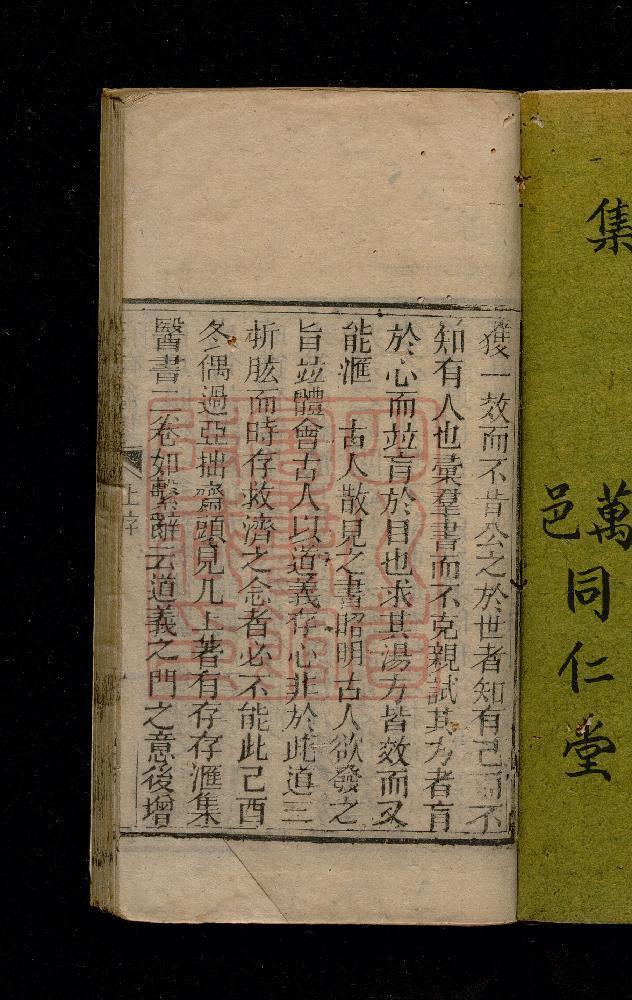 集
萬
邑
同仁堂
獲一效而不肯公之於世者知有己而不
知有人也彙羣書而不克親試其方者盲
於心而並盲於目也求其湯方皆效而又
能滙 古人散見之書昭明古人欲發之
旨並體會古人以道義存心非於此道三
折肱而時存救濟之念者必不能此己酉
冬偶過亞拙齋頭見几上著有存存滙集
醫書二卷如繫辭云道義之門之意後增
上序